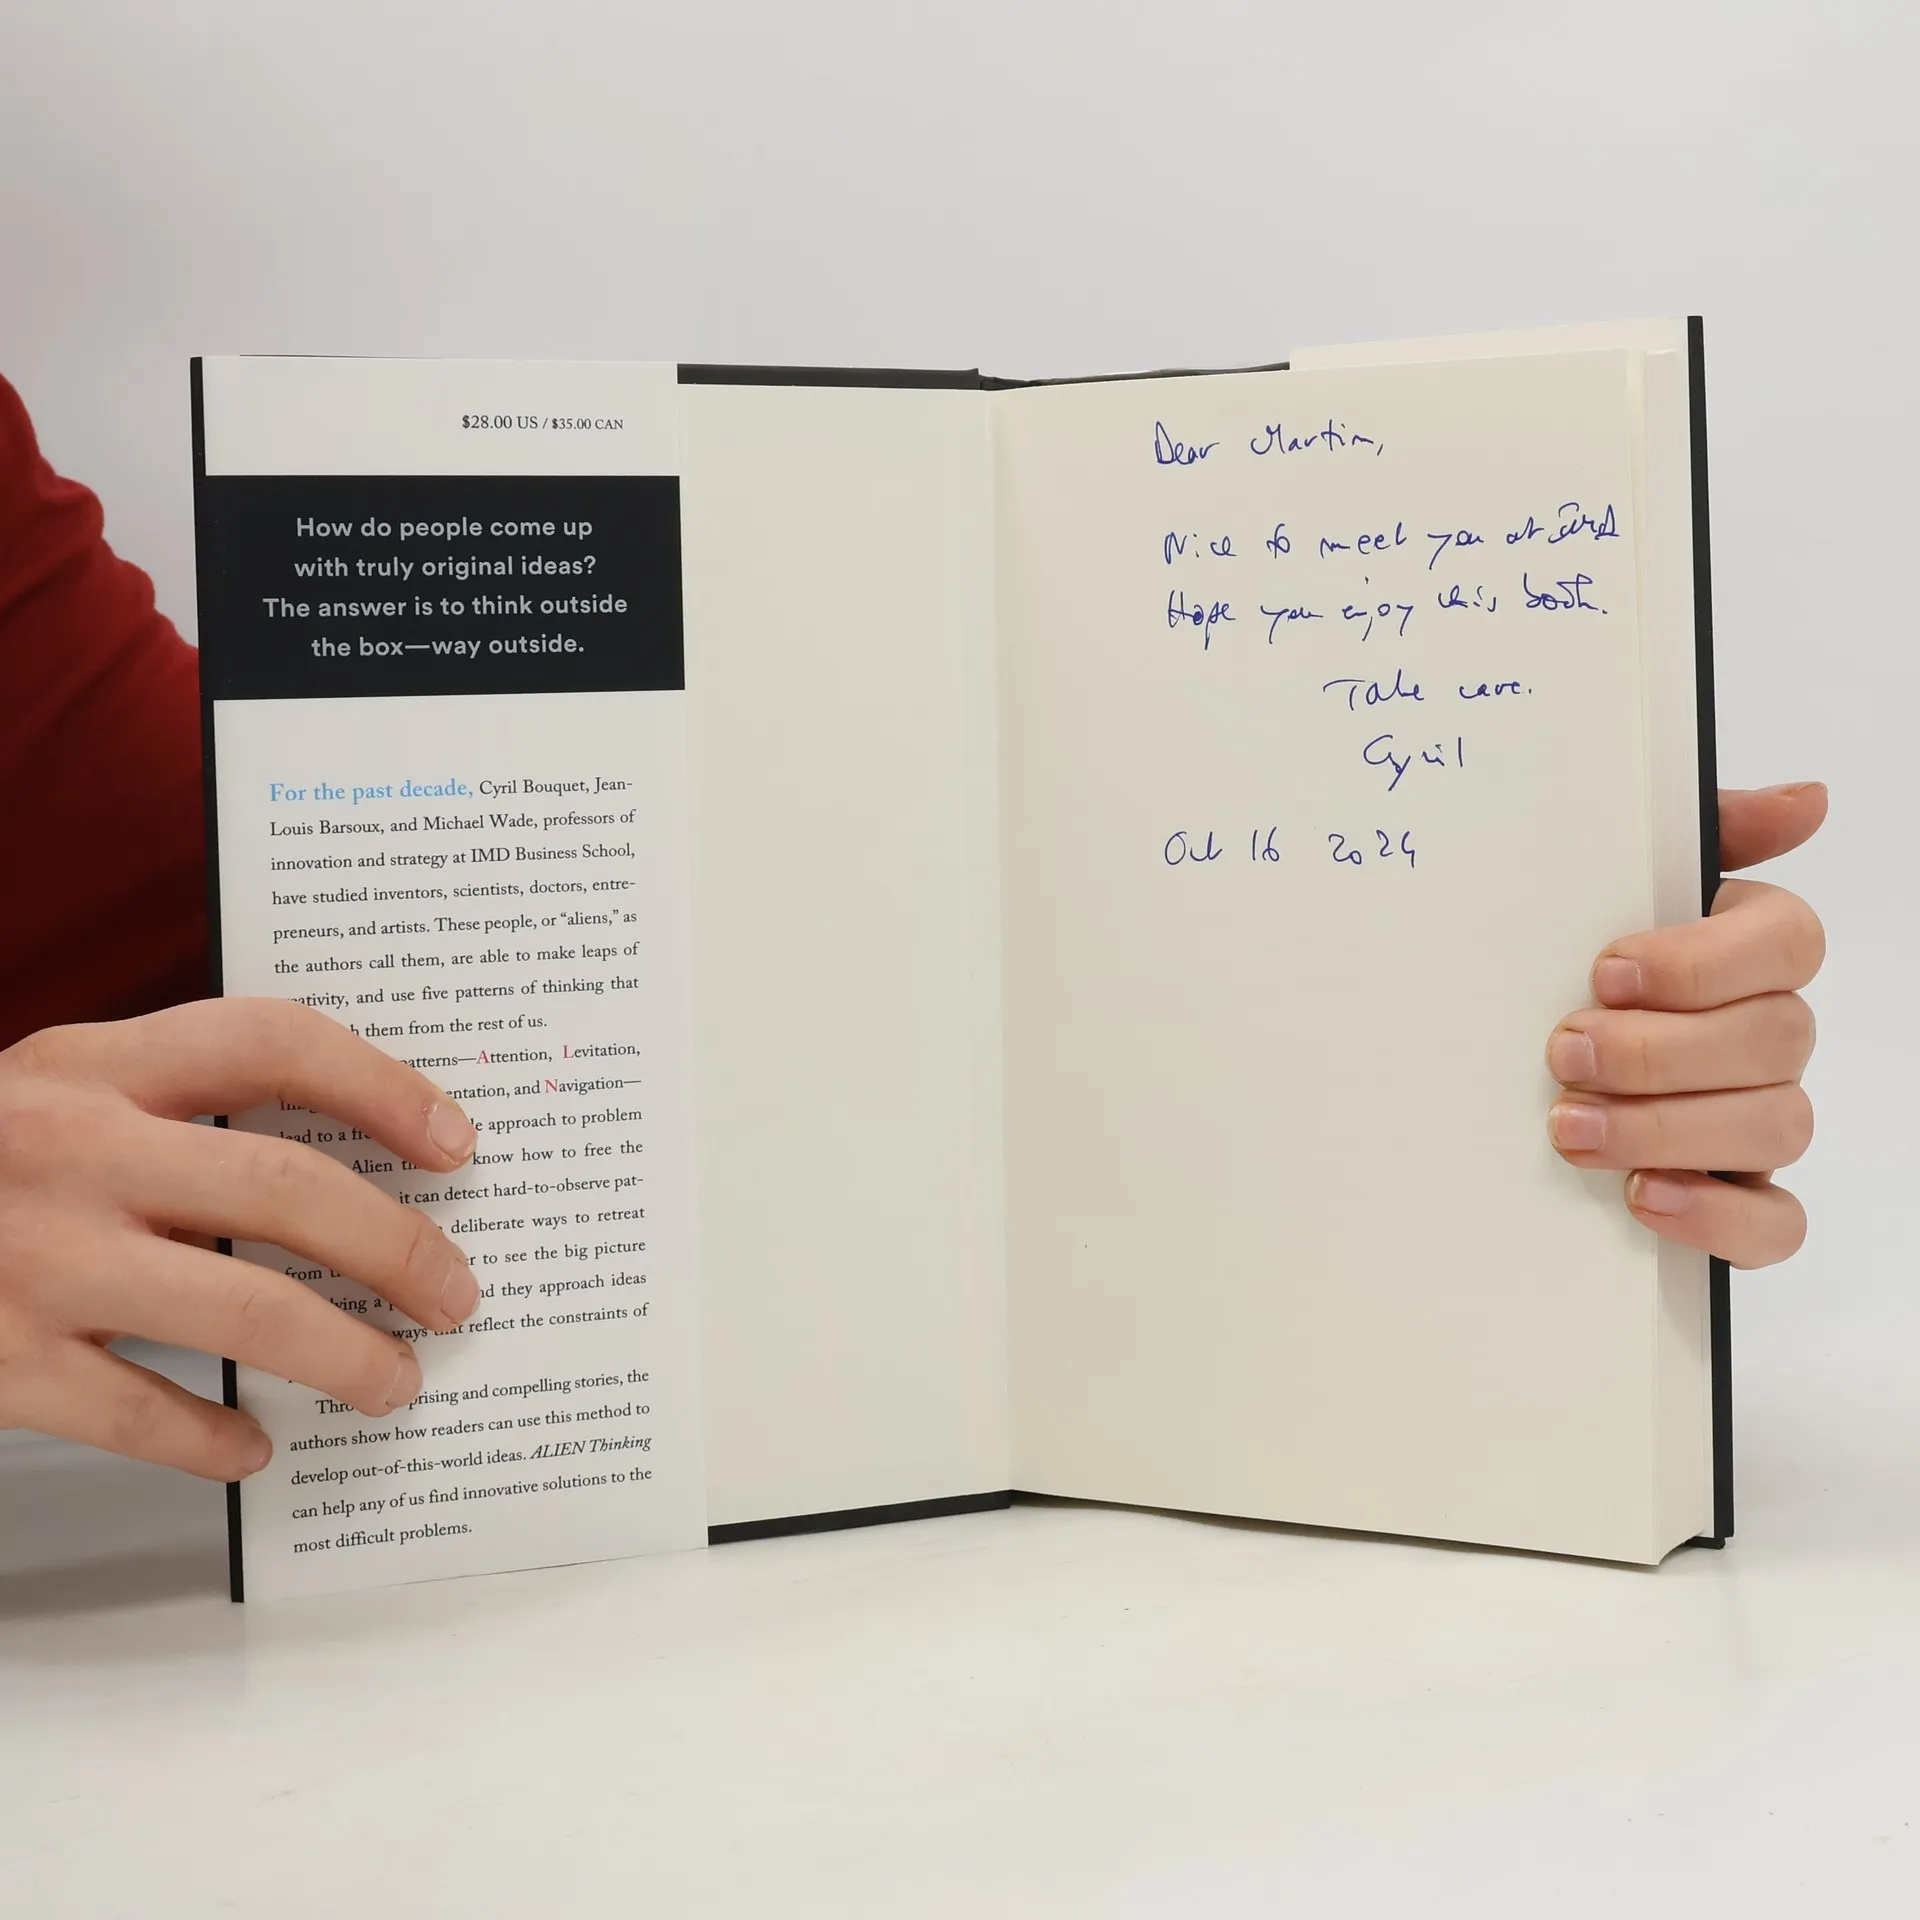 $28.00 US / $35.00 CAN
How do people come up
with truly original ideas?
The answer is to think outside
the box—way outside.
For the past decade, Cyril Bouquet, Jean-
Louis Barsoux, and Michael Wade, professors of
innovation and strategy at IMD Business School,
have studied inventors, scientists, doctors, entre-
preneurs, and artists. These people, or “aliens,” as
the authors call them, are able to make leaps of
and use five patterns of thinking that
them from the rest of us.
Attention, Levitation,
and Navigation—
to a approach to problem
Alien know how to free the
it can detect hard-to-observe pat-
deliberate ways to retreat
from to see the big picture
a they approach ideas
ways reflect the constraints of
and compelling stories, the
authors show how readers can use this method to
develop out-of-this-world ideas. ALIEN Thinking
can help any of us find innovative solutions to the
most difficult problems.
Dear Martin,
Nice to meet you at
Hope you enjoy this book.
Take care.
Cyril
Oct 16 2024